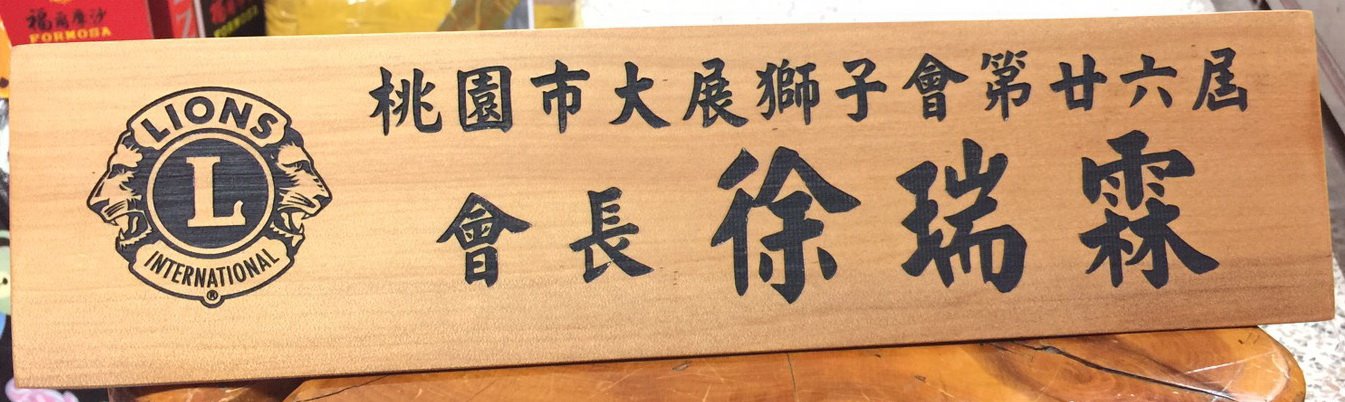 福爾摩沙
FORMOSA
FORMOSA
桃園市大展獅子會第廿六屆
會長 徐瑞霖
LIONS
L
INTERNATIONAL
®